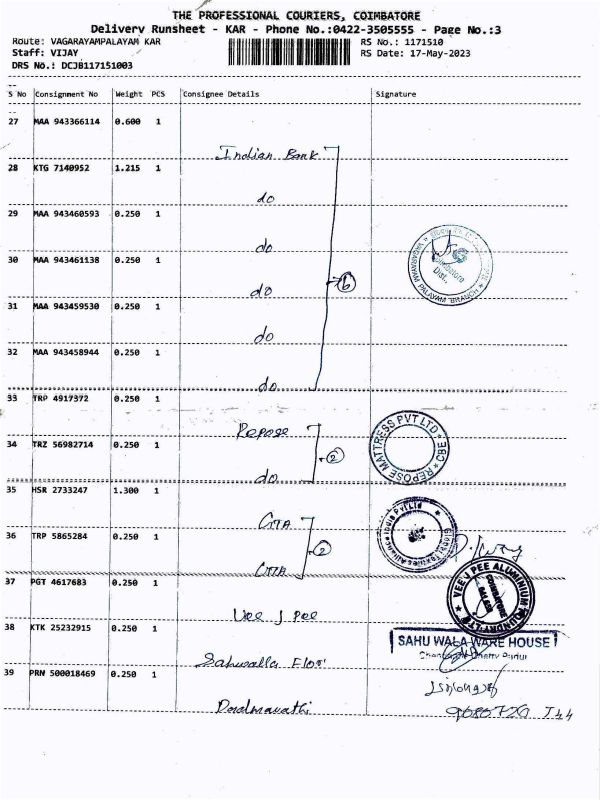 THE PROFESSIONAL COURIERS, COIMBATORE
Delivery Runsheet - KAR - Phone No.:0422-3505555 - Page No.:3
Route: VAGARAYAMPALAYAM KAR RS No.: 1171510
Staff: VIJAY RS Date: 17-May-2023
DRS No.: DCJB117151003
S No Consignment No Weight PCS Consignee Details Signature
27 MAA 943366114 0.600 1
Indian Bank
28 KTG 7140952 1.215 1
do
29 MAA 943460593 0.250 1
do
30 MAA 943461138 0.250 1
do
6
VAGARAYAM PALAYAM BRANCH
Coimbatore
Dist.,
31 MAA 943459530 0.250 1
do
32 MAA 943458944 0.250 1
do
33 TRP 4917372 0.250 1
Repose
34 TRZ 56982714 0.250 1
2
REPOSE MATTRESS PVT LTD * CBE *
do
35 HSR 2733247 1.300 1
GTTA
36 TRP 5865284 0.250 1
2
Global Textiles Alliance India Pvt Ltd
GTTA
37 PGT 4617683 0.250 1
Vee J Pee
VEE J PEE ALUMINIUM FOUNDRY LTD
COIMBATORE
38 KTK 25232915 0.250 1
SAHU WALA WARE HOUSE
39 PRN 500018469 0.250 1